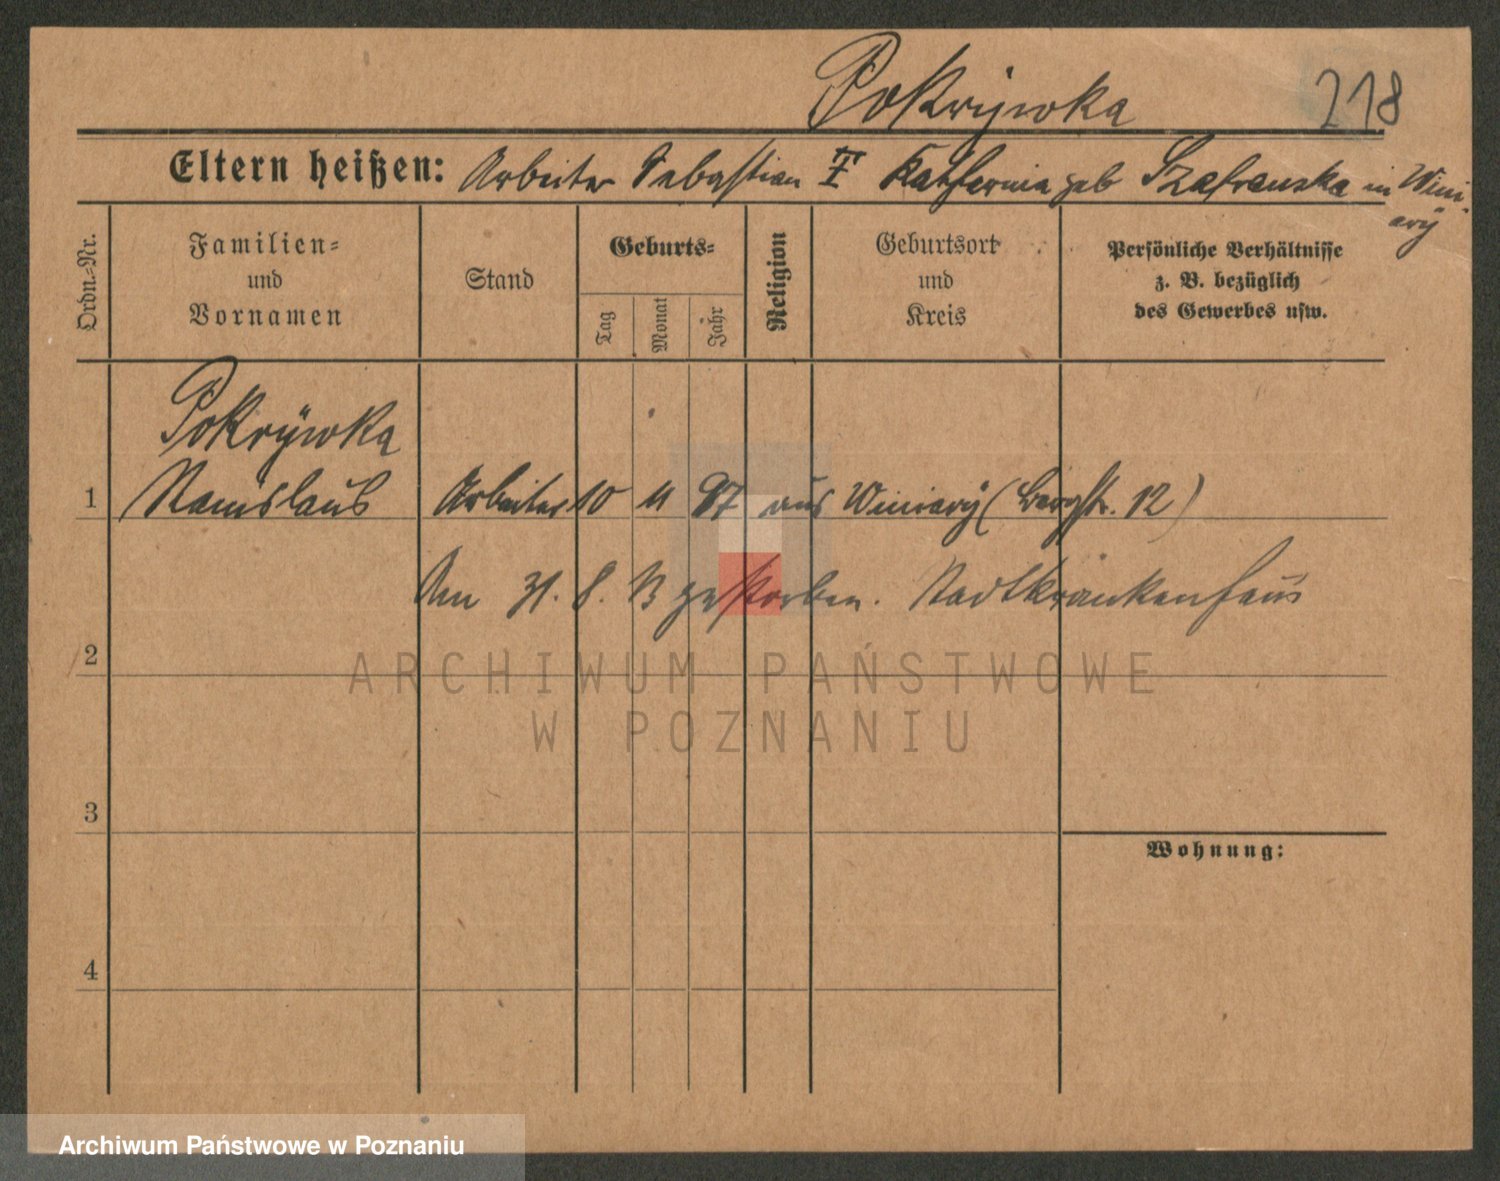 Pokrÿwka
218
Eltern heißen: Arbeiter Sebastian Katharina geb Szafranska in Wini-
arÿ
Ordn.-Nr.
Familien-
und
Vornamen
Stand
Geburts-
Tag
Monat
Jahr
Religion
Geburtsort
und
Kreis
Persönliche Verhältnisse
z. B. bezüglich
des Gewerbes usw.
Pokrÿwka
1 Stanislaus Arbeiter 10 11 87 aus Winiarÿ (Bergstr. 12)
Am 31. 8. 13 gestorben. Stadtkrankenhaus
2
3
Wohnung:
4
ARCHIWUM PAŃSTWOWE
W POZNANIU
Archiwum Państwowe w Poznaniu